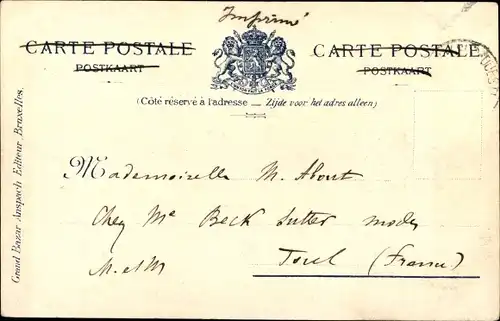 Imprimé
CARTE POSTALE
POSTKAART
CARTE POSTALE
POSTKAART
(Côté réservé à l'adresse — Zijde voor het adres alleen)
Mademoiselle M. About
Chez Me Beck Sutter modes
Toul (France)
M. et M
Grand Bazar Anspach Editeur, Bruxelles.